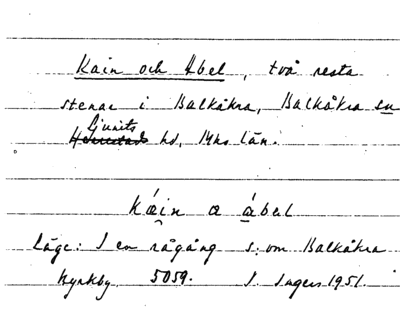 Kain och Abel, två resta
stenar i Balkåkra, Balkåkra sn
Ljunits
Herrestads hd, Mhs län.
Káin a ábel
Läge: I en rågång s: om Balkåkra
kyrkby. 5059. S. Ingers 1951.